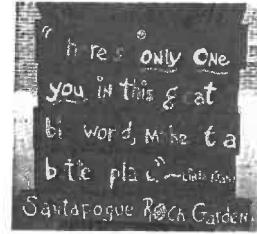 "There's only one
you in this great
big world, Make it a
better place."~
Santapogue Rock Garden